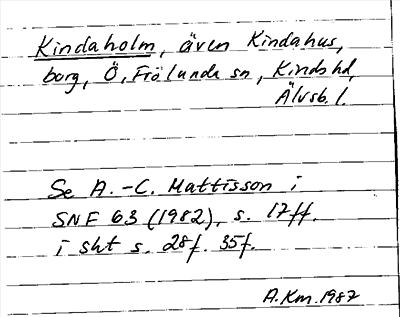 Kindaholm, även Kindahus,
borg, Ö, Frölunda sn, Kinds hd,
Älvsb. l.
Se A.-C. Mattisson i
SNF 63 (1982), s. 17ff.
i sht s. 28f. 35f.
A.Km.1987